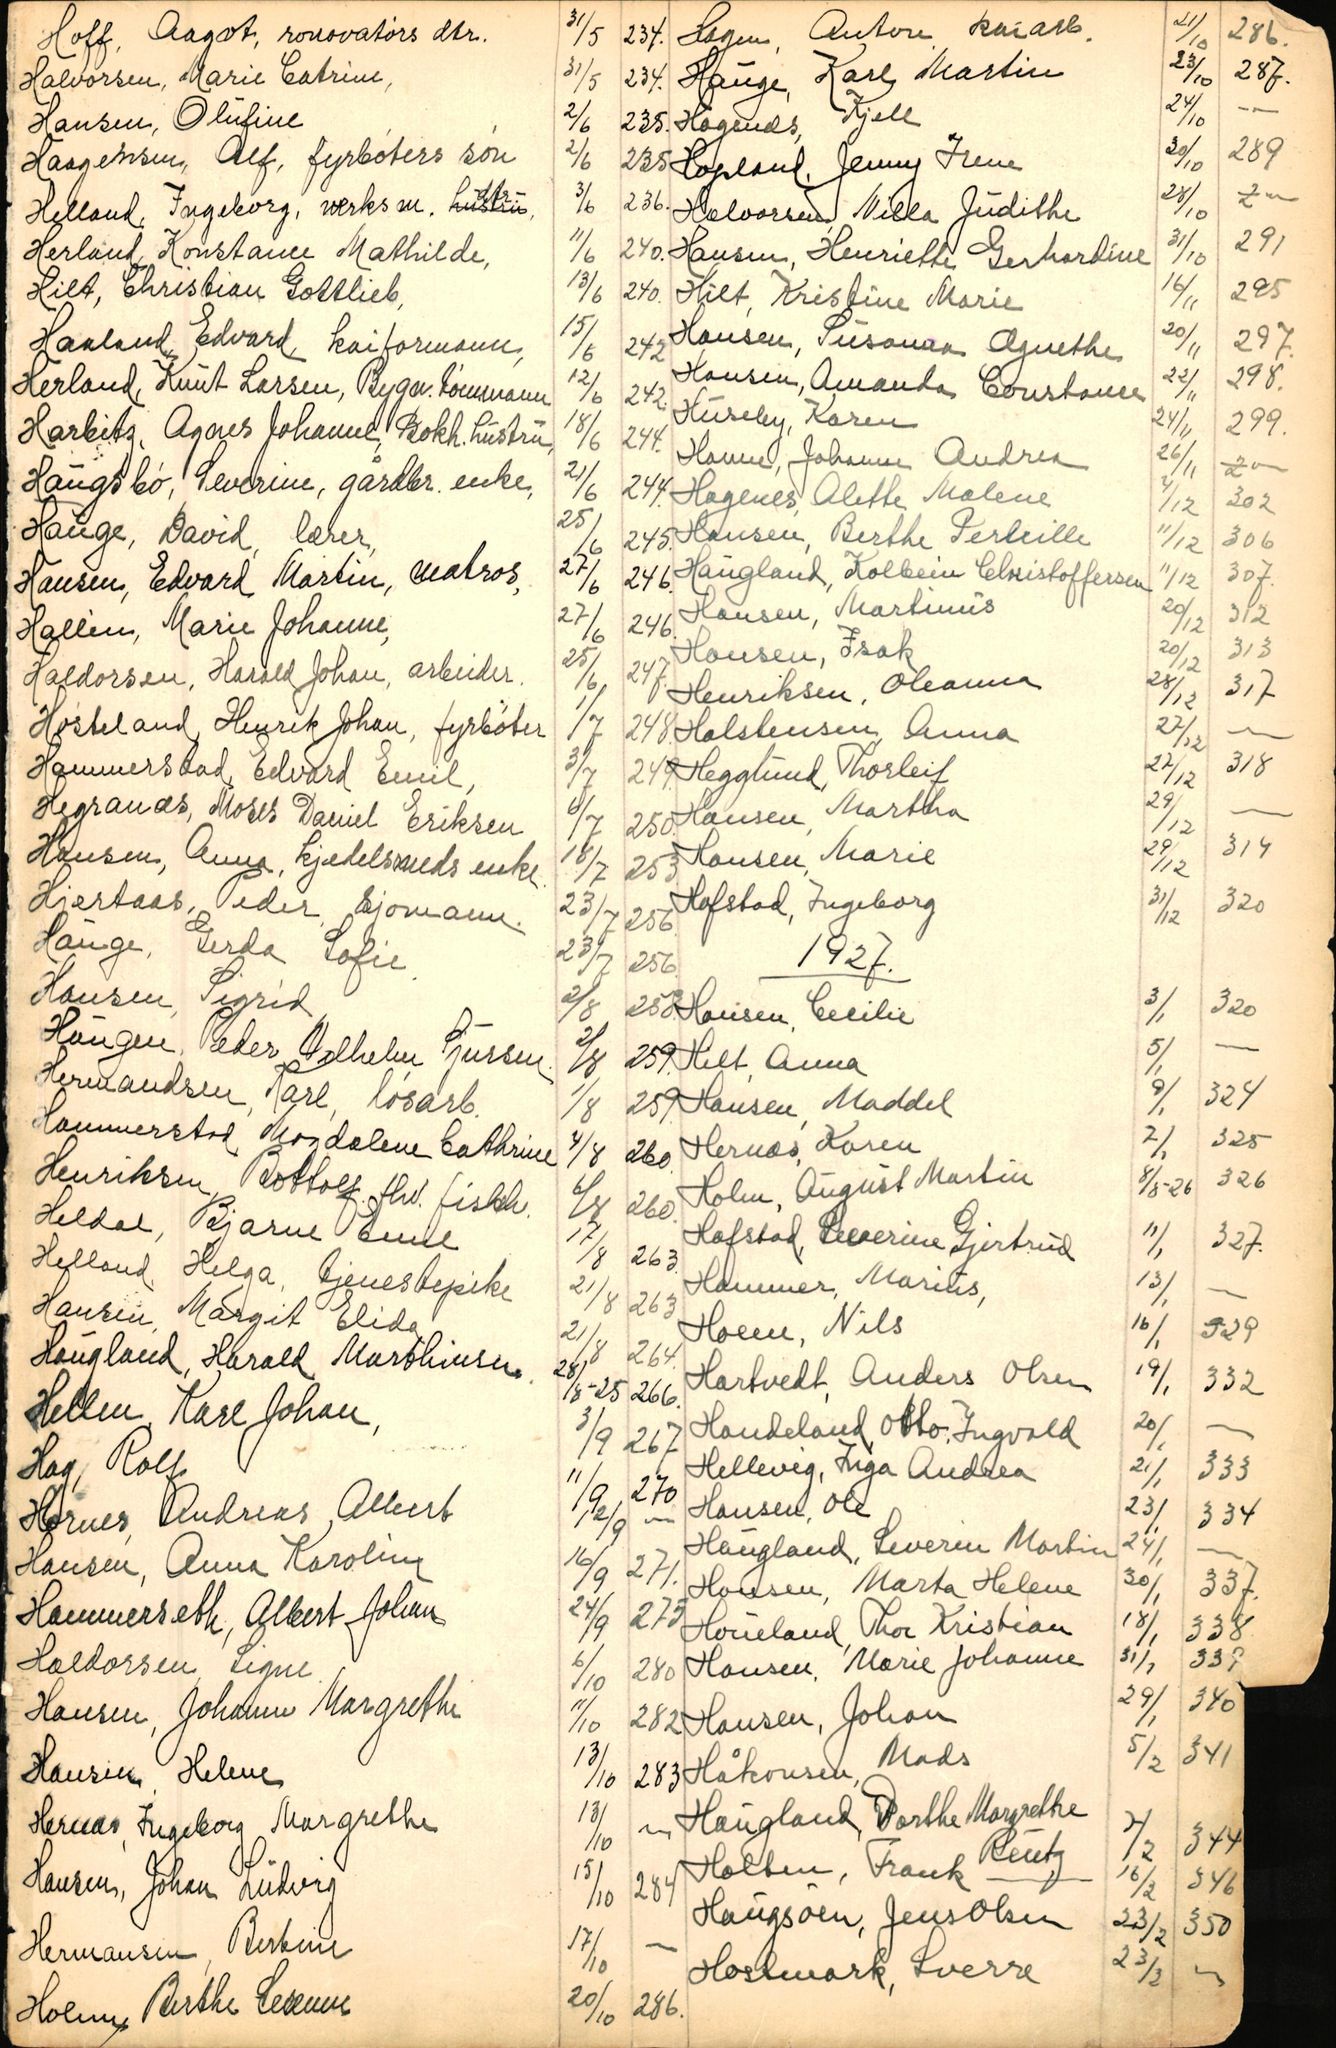 Hoff, Aagot, ronovatörs dtr. 31/5 234.
Halvorsen, Marie Catrine, 31/5 234.
Hansen, Olufine 2/6 235.
Haagensen, Alf, fyrböters sön 2/6 235
Helland, Ingeborg, verksm. hustru dtr. 3/6 236.
Herland, Konstance Mathilde, 11/6 240.
Hilt, Christian Gottlieb, 13/6 240.
Haaland, Edvard, kaiformann, 15/6 242
Herland, Knut Larsen, Bygn. tömmerm 12/6 242.
Harbitz, Agnes Johanne, Bokh. hustru, 18/6 244.
Haugsbö, Severine, gårdbr. enke, 21/6 244.
Hauge, David, lærer, 25/6 245.
Hansen, Edvard Martin, matros, 27/6 246.
Hallin, Marie Johanne, 27/6 246.
Haldorsen, Harald Johan, arbeider. 25/6 247
Hosteland, Henrik Johan, fyrböter 1/7 248
Hammerstad, Edvard Emil, 3/7 249.
Hegranæs, Moses Daniel Eriksen 6/7 250.
Hansen, Anna, kjedelsmeds enke. 18/7 253
Hjertaas, Peder, sjömann. 23/7 256
Hauge, Gerda Sofie 23/7 256.
Hansen, Sigrid 2/8 258
Haugen, Peder Vilhelm Sjursen. 2/8 259.
Hermandsen, Karl, lösarb. 1/8 259
Hammerstad, Magdalene Cathrine 4/8 260.
Henriksen, Bottolf, fhv. fiskeh. 6/8 260.
Heldal, Bjarne Emil 17/8 263.
Helland, Helga, tjenestepike 21/8 263
Hansen, Margit Elida 21/8 264.
Haugland, Harald Marthinsen, 28/8-25 266.
Hellen, Karl Johan, 3/9 267
Hag, Rolf 11/9 270
Hernes, Andreas Albert 12/9 —
Hansen, Anna Karoline 16/9 271.
Hammerseth, Albert Johan 24/9 275
Haldorsen, Signe 6/10 280
Hansen, Johanne Margrethe 11/10 282
Hansen, Helene 13/10 283
Hernæs, Ingeborg Margrethe 13/10 —
Hansen, Johan Ludvig 15/10 284
Hermansen, Bertine 17/10 —
Holm, Berthe 20/10 286.
Hagen, Anton, kaiarb. 21/10 286.
Hauge, Karl Martin 23/10 287.
Hagenæs, Kjell 24/10 —
Hopland, Jenny Irene 30/10 289
Halvorsen, Milla Judithe 28/10 —
Hansen, Henriette Gerhardine 31/10 291
Hilt, Kristine Marie 16/11 295
Hansen, Susanna Agnethe 20/11 297.
Hansen, Amanda Constance 22/11 298.
Huseby, Karen 24/11 299.
Hanne, Johanne Andrea 26/11 —
Hagenes, Alette Malene 4/12 302
Hansen, Berthe Pernille 11/12 306
Haugland, Kolbein Christoffersen 11/12 307.
Hansen, Martinus 20/12 312
Hansen, Isak 20/12 313
Henriksen, Oleanna 28/12 317
Halstensen, Anna 27/12 —
Hegglund, Thorleif 27/12 318
Hansen, Martha 29/12 —
Hansen, Marie 29/12 314
Hofstad, Ingeborg 31/12 320
1927.
Hansen, Cecilie 3/1 320
Hilt, Anna 5/1 —
Hansen, Maddel 9/1 324
Hernæs, Karen 7/1 325
Holm, August Martin 8/8-26 326
Hafstad, Severine Gjertrud 11/1 327.
Hammer, Marius, 13/1 —
Holm, Nils 16/1 329
Hartvedt, Anders Olsen 19/1 332
Haudeland, Otto Ingvald 20/1 —
Hellevig, Inga Andrea 21/1 333
Hansen, Ole 23/1 334
Haugland, Severin Martin 24/1 —
Hansen, Marta Helene 30/1 337.
Houeland, Thor Kristian 18/1 338
Hansen, Marie Johanne 31/1 339
Hansen, Johan 29/1 340
Håkonsen, Mads 5/2 341
Haugland, Dorthe Margrethe 7/2 344
Holben, Frank Bentz 16/2 346
Haugsöen, Jens Olsen 23/2 350
Hostmark, Sverre 23/2 —